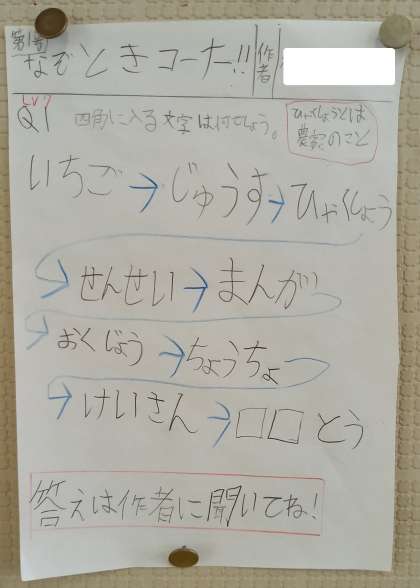 第1番
なぞときコーナー!! 作者
LV7
Q1 四角に入る文字は何でしょう。
ひゃくしょうとは
農家のこと
いちご→じゅうす→ひゃくしょう
→せんせい→まんが
→おくじょう→ちょうちょ
→けいさん→□□とう
答えは作者に聞いてね!